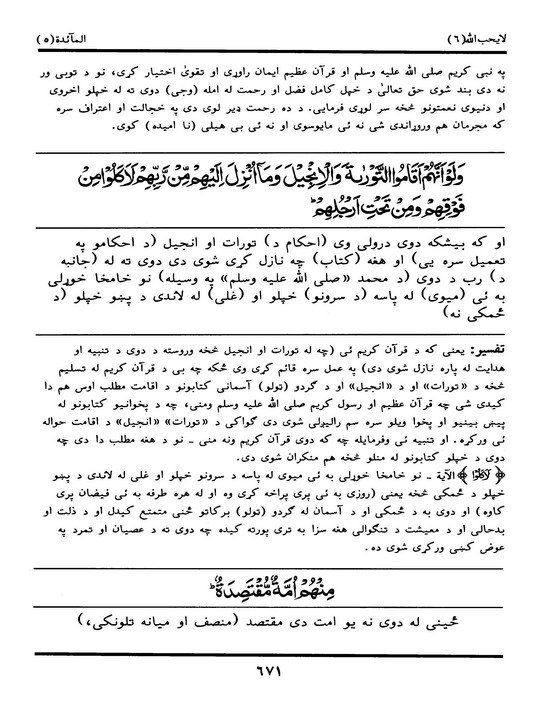 لايحب الله(٦) المآئدة(٥)
په نبى كريم صلى الله عليه وسلم او قرآن عظيم ايمان راوړى او تقوىٰ اختيار كړى، نو د توبى ور
نه دى بند شوى حق تعالىٰ د خپل كامل فضل او رحمت له امله (وجى) دوى ته له خپلو اخروى
او دنيوى نعمتونو څخه سر لوړى فرمايى. د ده رحمت ډير لوى دى په خجالت او اعتراف سره
كه مجرمان هم وروړاندى شى نه ئى مايوسوى او نه ئى بى هيلى (نا اميده) كوى.
وَلَوْ اَنَّهُمْ اَقَامُوا التَّوْرٰىةَ وَالْاِنْجِيْلَ وَمَآ اُنْزِلَ اِلَيْهِمْ مِّنْ رَّبِّهِمْ لَاَكَلُوْا مِنْ
فَوْقِهِمْ وَمِنْ تَحْتِ اَرْجُلِهِمْ ؕ
او كه بيشكه دوى درولى وى (احكام د) تورات او انجيل (د احكامو په
تعميل سره يى) او هغه (كتاب) چه نازل كړى شوى دى دوى ته له (جانبه
د) رب د دوى (د محمد «صلى الله عليه وسلم» په وسيله) نو خامخا خوړلى
به ئى (ميوى) له پاسه (د سرونو) خپلو او (غلى) له لاندى د پښو خپلو (د
ځمكى نه)
تفسير: يعنى كه د قرآن كريم ئى (چه له تورات او انجيل څخه وروسته د دوى د تنبيه او
هدايت له پاره نازل شوى دى) په عمل سره قائم كړى وى ځكه چه بى د قرآن كريم له تسليم
څخه د «تورات» او د «انجيل» او د گردو (ټولو) آسمانى كتابونو د اقامت مطلب اوس هم دا
كيدى شى چه قرآن عظيم او رسول كريم صلى الله عليه وسلم ومنى، چه د پخوانيو كتابونو له
پيښ بينيو او پخوا ويلو سره سم راليږلى شوى دى گواكى د «تورات» «انجيل» د اقامت حواله
ئى وركړه. او تنبيه ئى وفرمايله چه كه دوى قرآن كريم ونه منى ـ نو د هغه مطلب دا دى چه
دوى د خپلو كتابونو له منلو څخه هم منكران شوى دى.
﴿لَاَكَلُوْا﴾ الآية ـ نو خامخا خوړلى به ئى ميوى له پاسه د سرونو خپلو او غلى له لاندى د پښو
خپلو د ځمكى څخه يعنى (روزى به ئى پرى پراخه كړى وه او له هره طرفه به ئى فيضان پرى
كاوه) او دوى به د ځمكى او د آسمان له گردو (ټولو) بركاتو څنى متمتع كيدل او د ذلت او
بدحالى او د معيشت د تنگوالى هغه سزا به ترى پورته كيده چه دوى ته د عصيان او تمرد په
عوض كښى وركړى شوى ده.
مِنْهُمْ اُمَّةٌ مُّقْتَصِدَةٌ ؕ
ځينى له دوى نه يو امت دى مقتصد (منصف او ميانه تلونكى،)
٦٧١